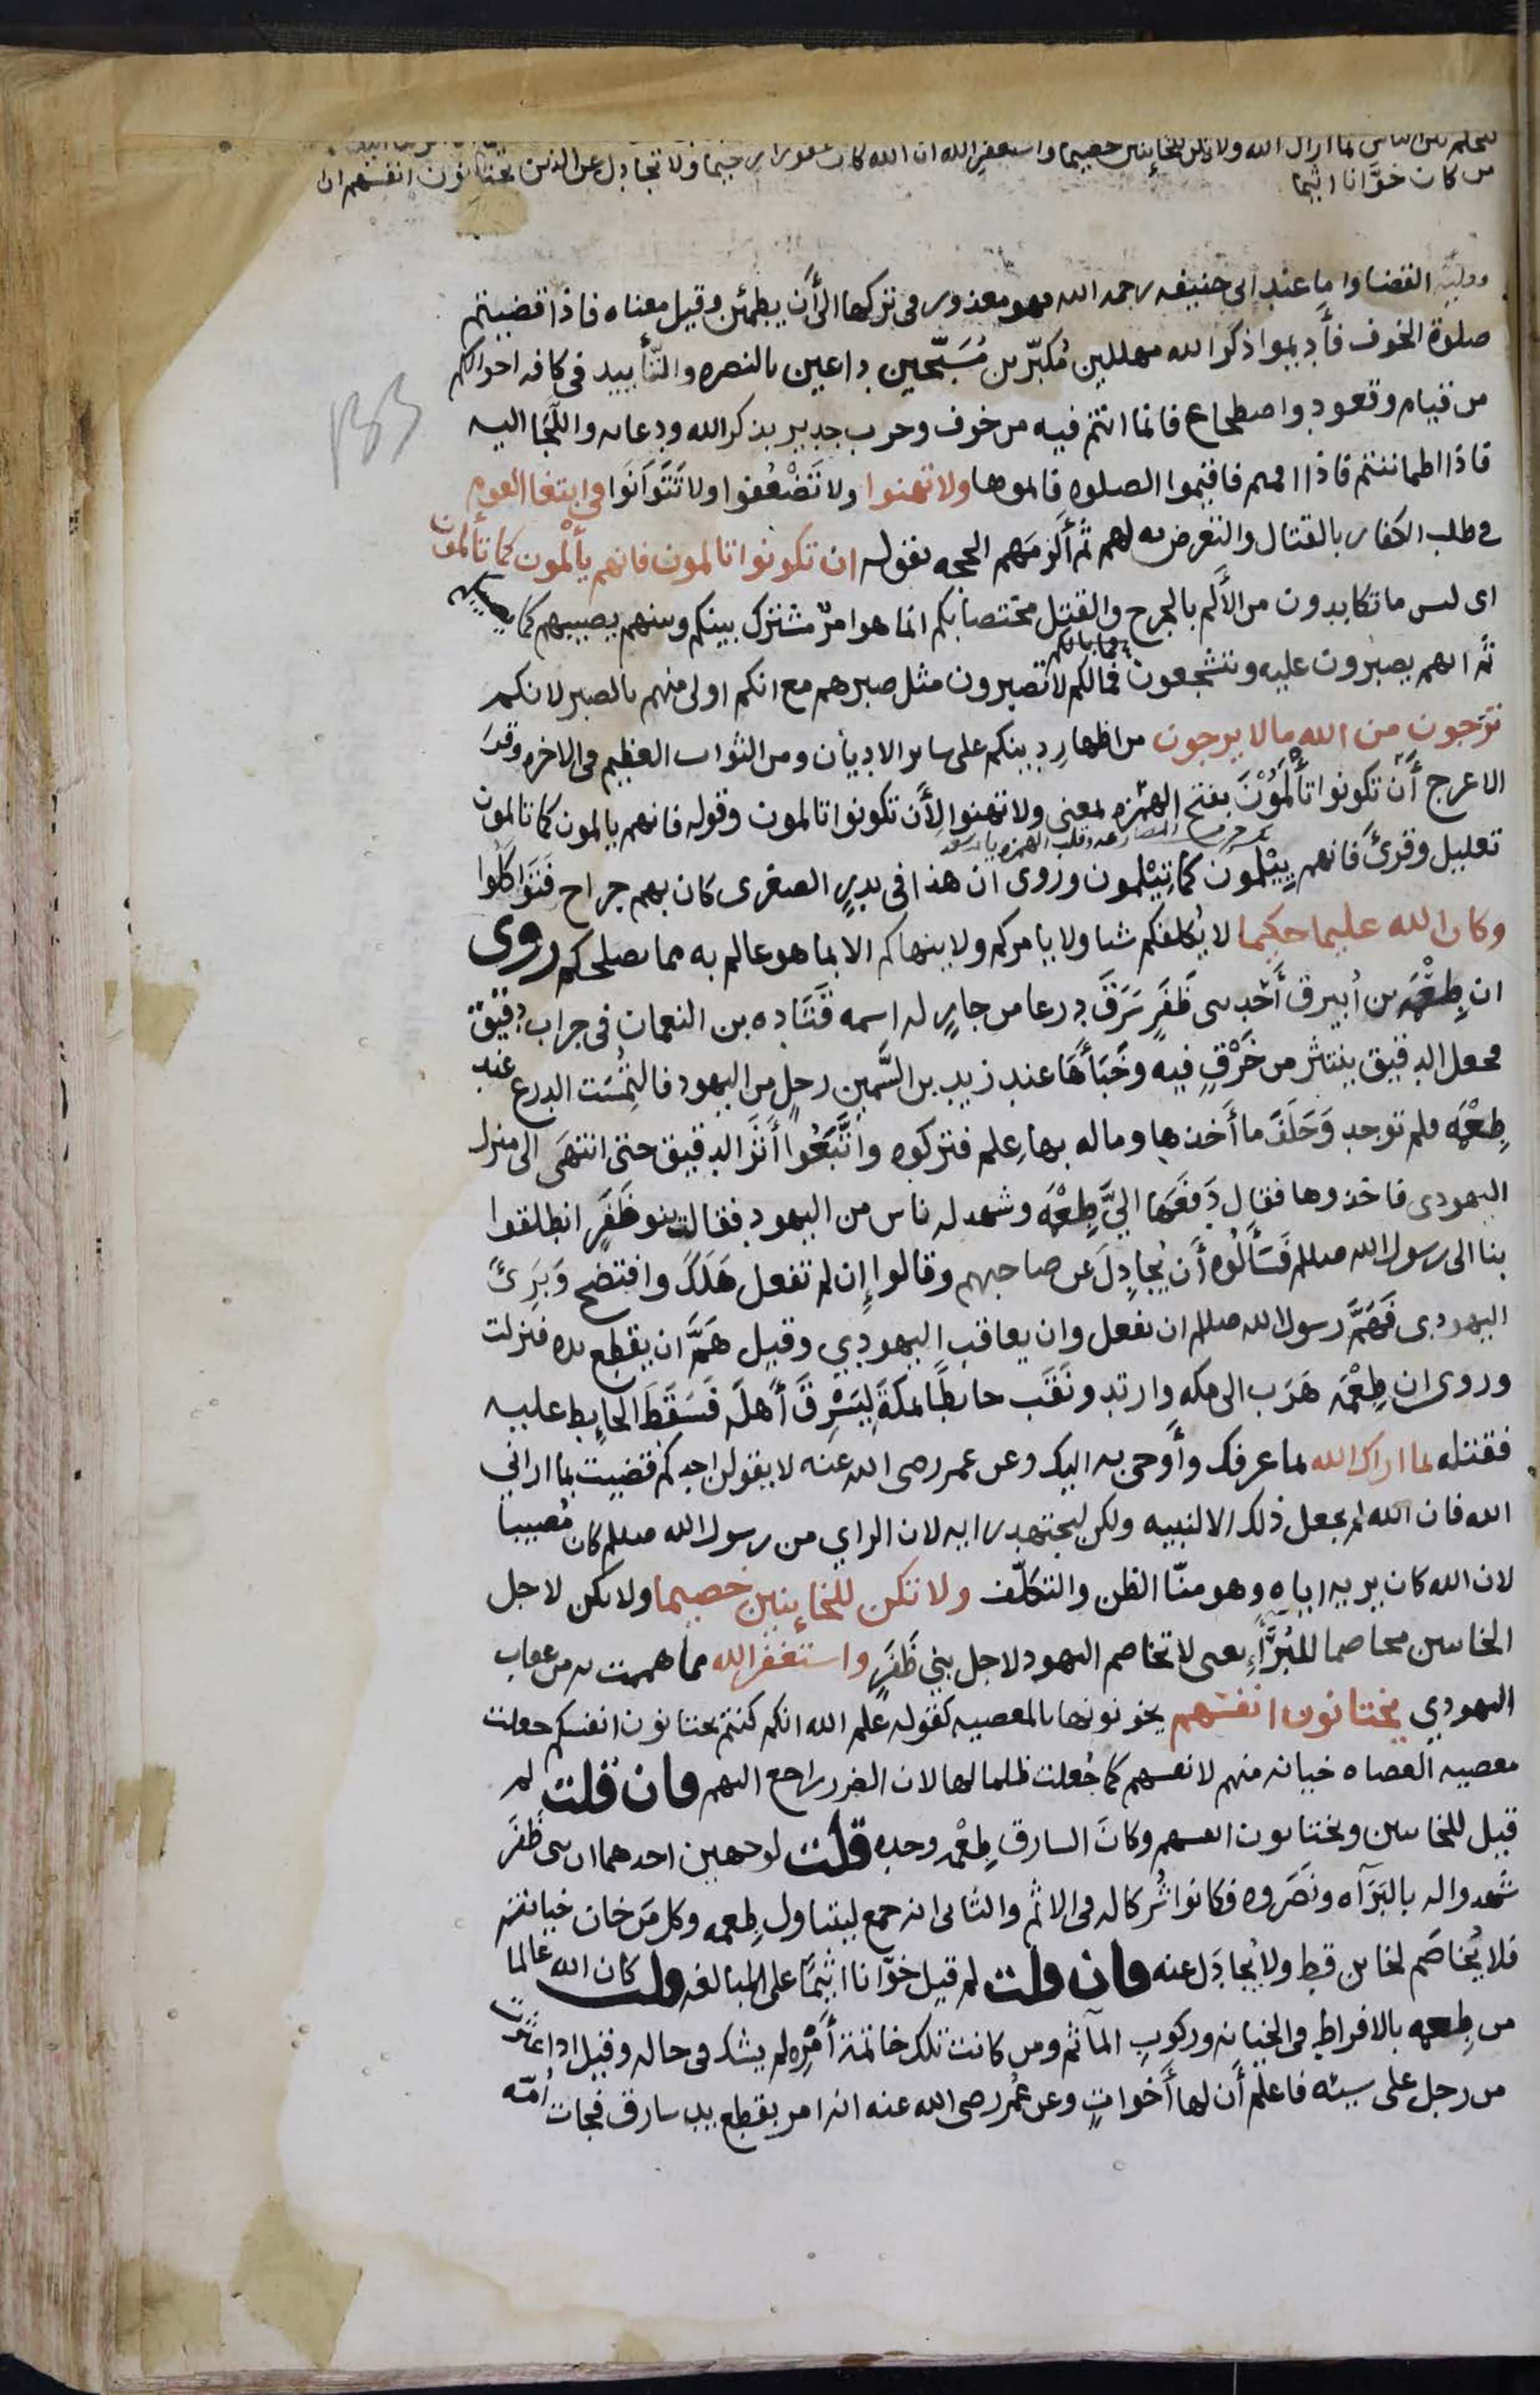 لتحكم بين الناس بما اراك الله ولا تكن للخاينين خصيما واستغفر الله ان الله كان غفورا رحيما ولا تجادل عن الذين يختانون انفسهم ان
من كان خوّانا اثيما
القضا واما عند ابى حنيفه رحمه الله فهو معذور فى تركها الى أن يطمئن وقيل معناه فاذا قضيتم
صلوة الخوف فأديموا ذكر الله مهللين مُكبّرين مُسَبّحين داعين بالنصره والتّأييد فى كافه احوالكم
من قيام وقعود واضطجاع فانما انتم فيه من خوف وحرب جدير بذكر الله ودعايه واللّجا اليه
133
فاذا اطماننتم فاذا اقمتم فاقيموا الصلوه فاتموها ولا تهنوا ولا تَضْعُفوا ولا تَتَوَانَوا فى ابتغا القوم
فى طلب الكفار بالقتال والتعرض به لهم ثم أَلزمَهم الحجه بقوله ان تكونوا تالمون فانهم يألمون كما تألمون
اى ليس ما تكابدون من الأَلم بالجرح والقتل مختصا بكم انما هو امرٌ مشترك بينكم وبينهم يصيبهم كما يصيبكم
ثم انهم يصبرون عليه ويتشجعون فمالكم لا تصبرون مثل صبرهم مع انكم اولى منهم بالصبر لانكم
فما بالكم
ترجون من الله مالا يرجون من اظهارِ دينكم على ساير الاديان ومن الثواب العظيم فى الاخره وقرَا
الاعرج أَن تكونوا تأْلَمُوْنَ بفتح الهمزه بمعنى ولا تهنوا لأَن تكونوا تالمون وقوله فانهم يالمون كما تالمون
تعليل وقرئَ فانهم يِيْلمون كما تِيْلمون وروى ان هذا فى بدرٍ الصغرى كان بهم جراح فتَوَاكَلُوا
وكان الله عليما حكيما لا يُكلفكم شيا ولا يامركم ولا ينهاكم الا بما هو عالم به مما يصلحكم روى
ان طِعْمَه بن اُبيرق أَحد بنى ظَفَرٍ سَرَقَ درعا من جارٍ له اسمه قَتَاده بن النعمان فى جراب دقيق
فجعل الدقيق ينتثر من خَرْقٍ فيه وخَبَأَهَا عند زيد بن السَّمين رجلٍ من اليهود فالتُمِسَت الدرع عند
طِعْمَه فلم توجد وَحَلَفَ ما أَخذها وماله بها عِلم فتركوه واتَّبَعُوا أَثَرَ الدقيق حتى انتهَى الى منزل
اليهودى فاخذوها فقال دَفَعَها اليَّ طِعْمَه وشهد له ناس من اليهود فقالت بنو ظَفَرٍ انطلقوا
بنا الى رسول الله صللم فَسَأَلُوْه أَن يُجادِلَ عن صاحبهم وقالوا إِن لم تفعل هَلَكَ وافتضح وَبَرِئَ
اليهودى فَهَمَّ رسول الله صللم ان يفعل وان يعاقب اليهودي وقيل هَمَّ ان يقطع يده فنزلت
وروى ان طِعْمَه هَرَب الى مكه وارتد ونَقَب حايطًا بمكةَ لِيَسْرِقَ أَهلَه فَسَقَطَ الحايط عليه
فقتله بما اراك الله بما عرفك وأَوحى به اليك وعن عمر رضى الله عنه لا يقولن احدكم قضيت بما ارانى
الله فان الله لم يجعل ذلك الا لنبيه ولكن ليجتهد رايه لان الراي من رسول الله صللم كان مُصيبا
لان الله كان يريه اياه وهو منّا الظن والتكلّف ولا تكن للخاينين خصيما ولا تكن لاجل
الخاينين مخاصما للبُرَّأءِ يعنى لا تخاصم اليهود لاجل بنى ظَفَرٍ واستغفر الله مما هممت به من عقاب
اليهودي يختانون انفسهم يخونونها بالمعصيه كقوله علم الله انكم كنتم تختانون انفسكم جعلت
معصيه العصاه خيانه منهم لانفسهم كما جُعلت ظلما لها لان الضرر راجع اليهم فان قلت لم
قيل للخاينين ويختانون انفسهم وكانَ السارق طِعْمَه وحده قلت لوجهين احدهما ان بنى ظَفَر
شَهدوا له بالبَرَآه ونَصَروه فكانوا شُركا له فى الاثم والثانى انه جمع ليتناول طِعمه وكل مَن خان خيانته
فلا يُخاصَم لخاين قط ولا يُجادَل عنه فان قلت لم قيل خوّانا اثيمًا على المبالغه قلت كان الله عالما
من طِعمه بالافراط فى الخيانه وركوبِ المآثم ومن كانت تلك خاتمة أَمْرِه لم يشك فى حاله وقيل اذا عثرت
من رجل على سيئه فاعلم أَن لها أَخواتٍ وعن عُمر رضى الله عنه انه امر بقطع يد سارق فجات اُمّه